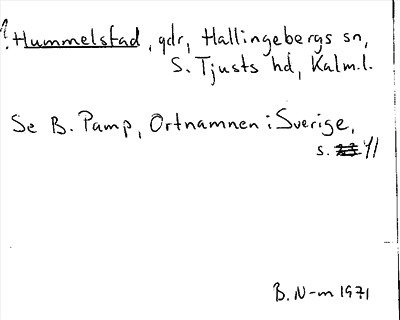 Hummelstad, gdr, Hallingebergs sn,
S. Tjusts hd, Kalm.l.
Se B. Pamp, Ortnamnen i Sverige,
s. 41
B. N-m 1971